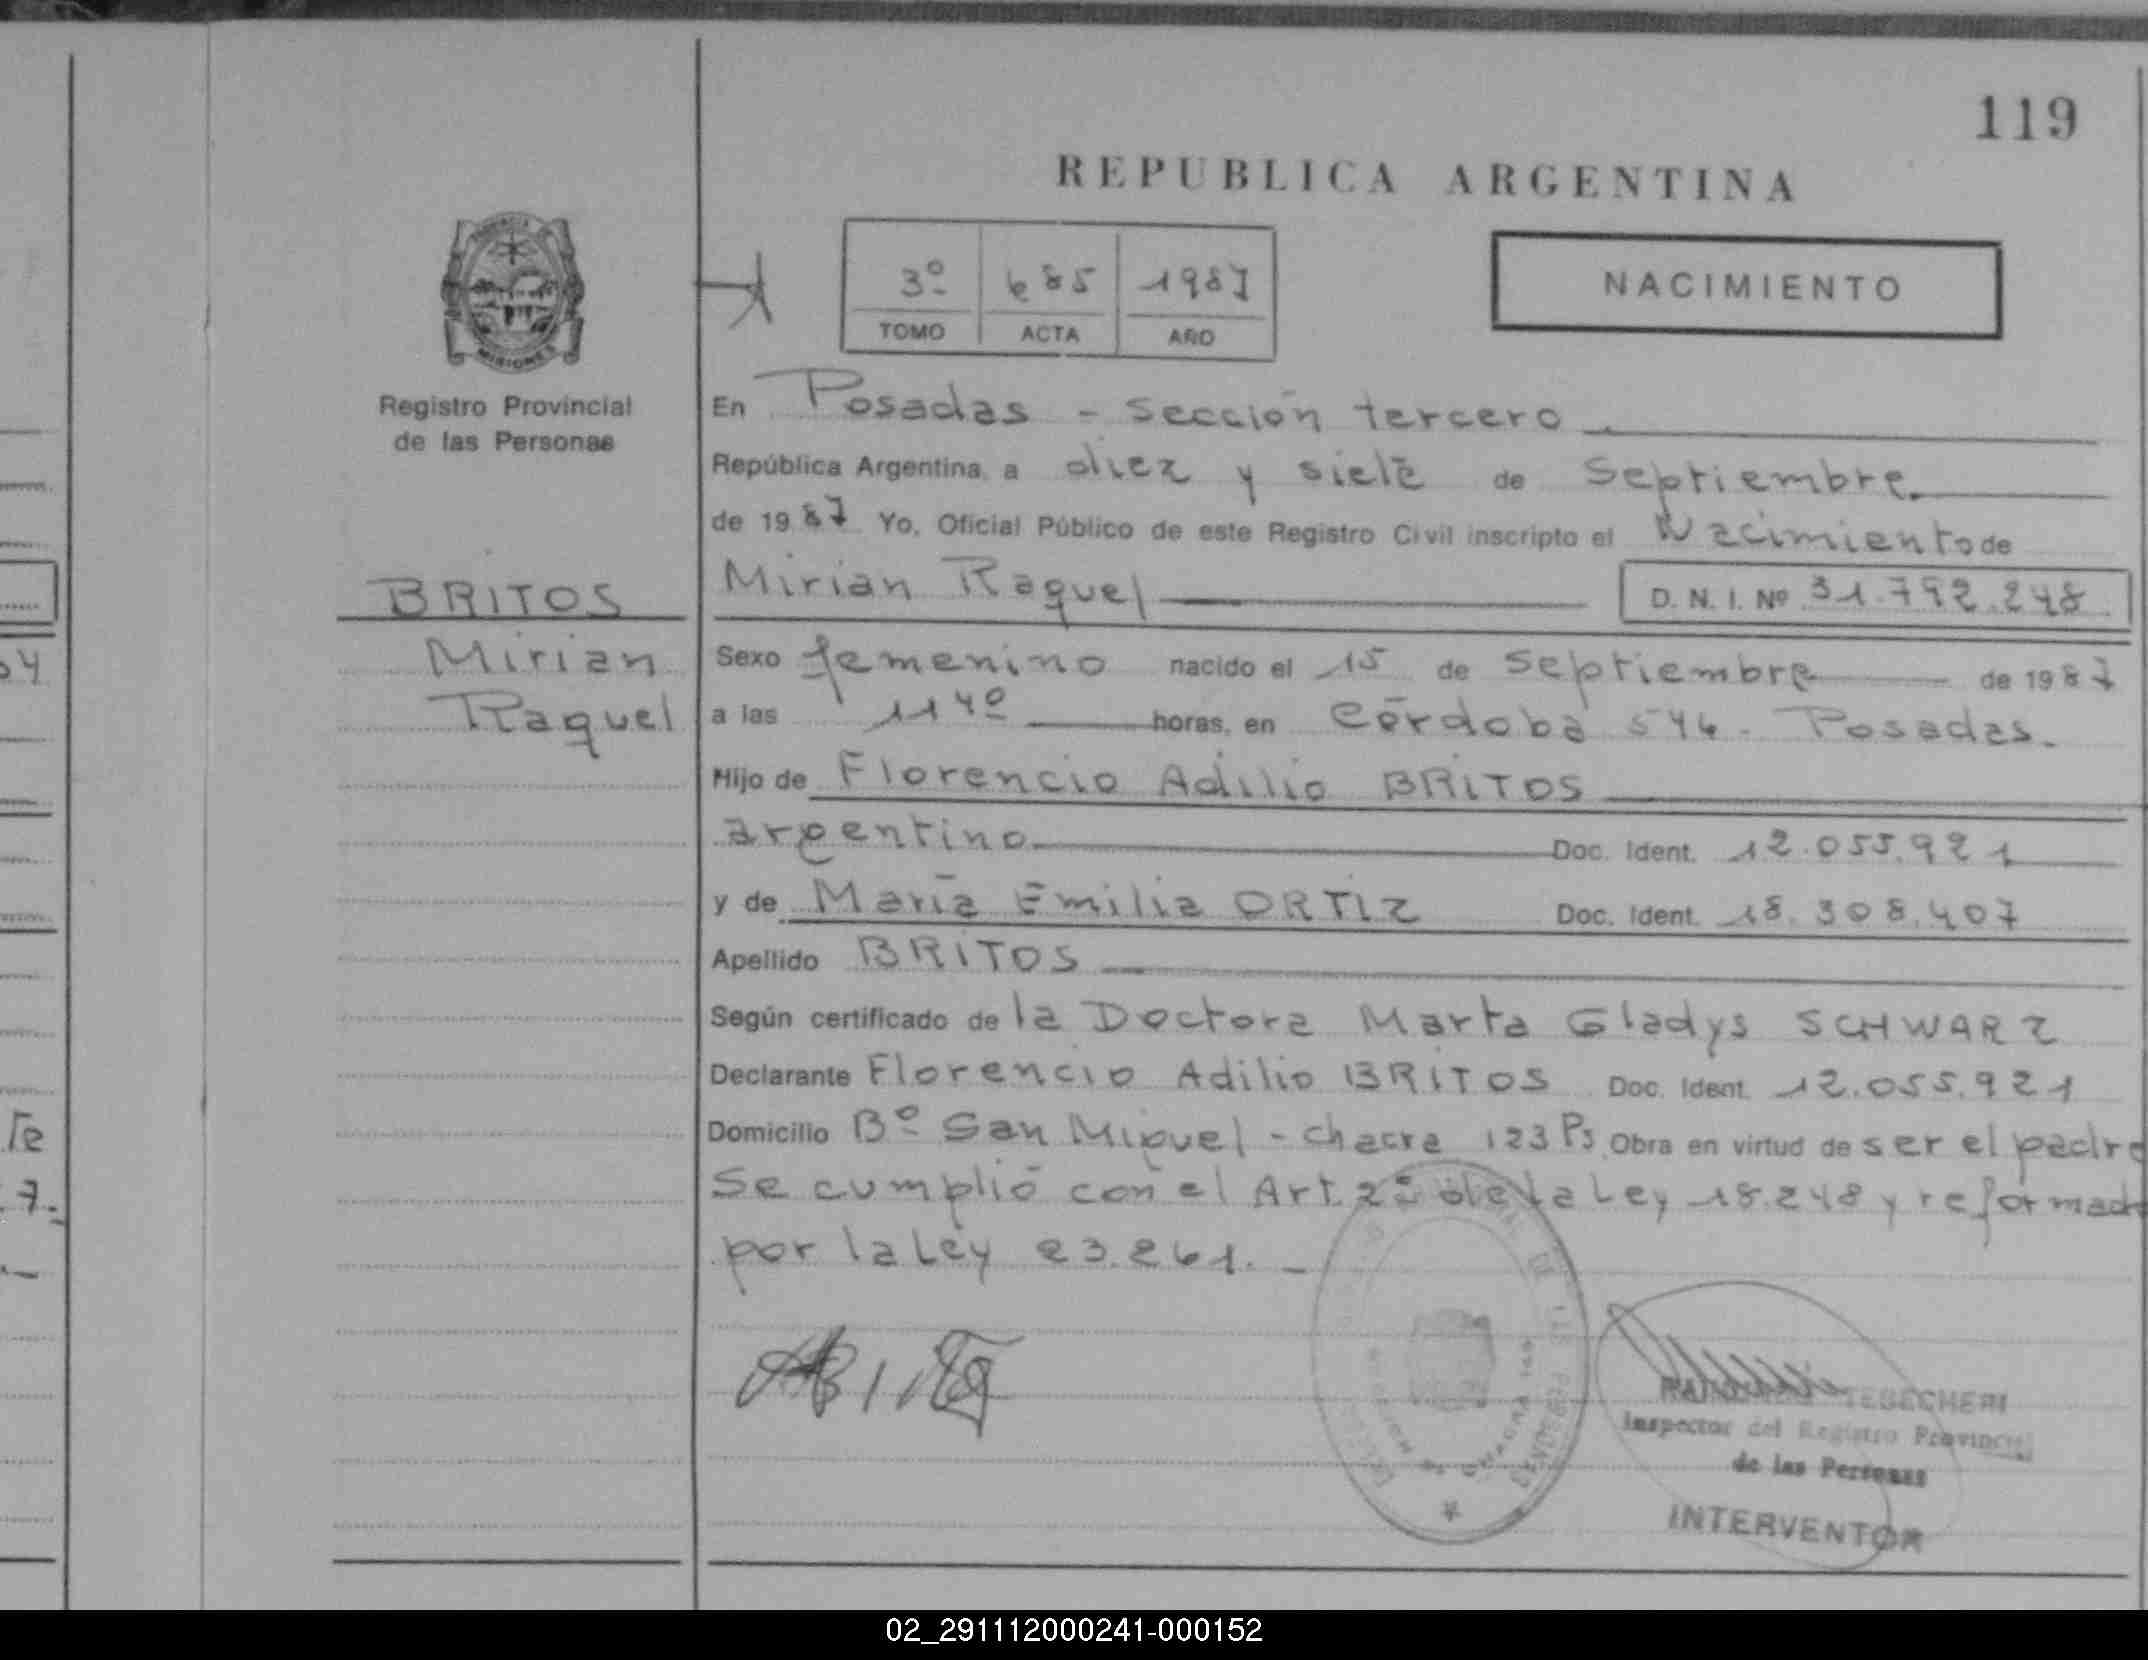 119
REPUBLICA ARGENTINA
3º 685 1987
TOMO ACTA AÑO
NACIMIENTO
MISIONES
Registro Provincial
de las Personas
BRITOS
Mirian
Raquel
En Posadas - sección tercero
República Argentina, a diez y siete de Septiembre
de 1987 Yo, Oficial Público de este Registro Civil inscripto el Nacimiento de
Mirian Raquel D. N. I. Nº 31.792.248
Sexo femenino nacido el 15 de Septiembre de 1987
a las 11 4º horas, en Córdoba 546 - Posadas.
Hijo de Florencio Adilio BRITOS
argentino Doc. Ident. 12.055.921
y de María Emilia ORTIZ Doc. Ident. 18.308.407
Apellido BRITOS
Según certificado de la Doctora Marta Gladys SCHWARZ
Declarante Florencio Adilio BRITOS Doc. Ident. 12.055.921
Domicilio Bº San Miguel - chacra 123 Ps. Obra en virtud de ser el padre
Se cumplió con el Art. 2º de la Ley 18.248 y reformad
por la Ley 23.261. -
TEBECHERI
Inspector del Registro Provincial
de las Personas
INTERVENTOR
te
7.
02_291112000241-000152